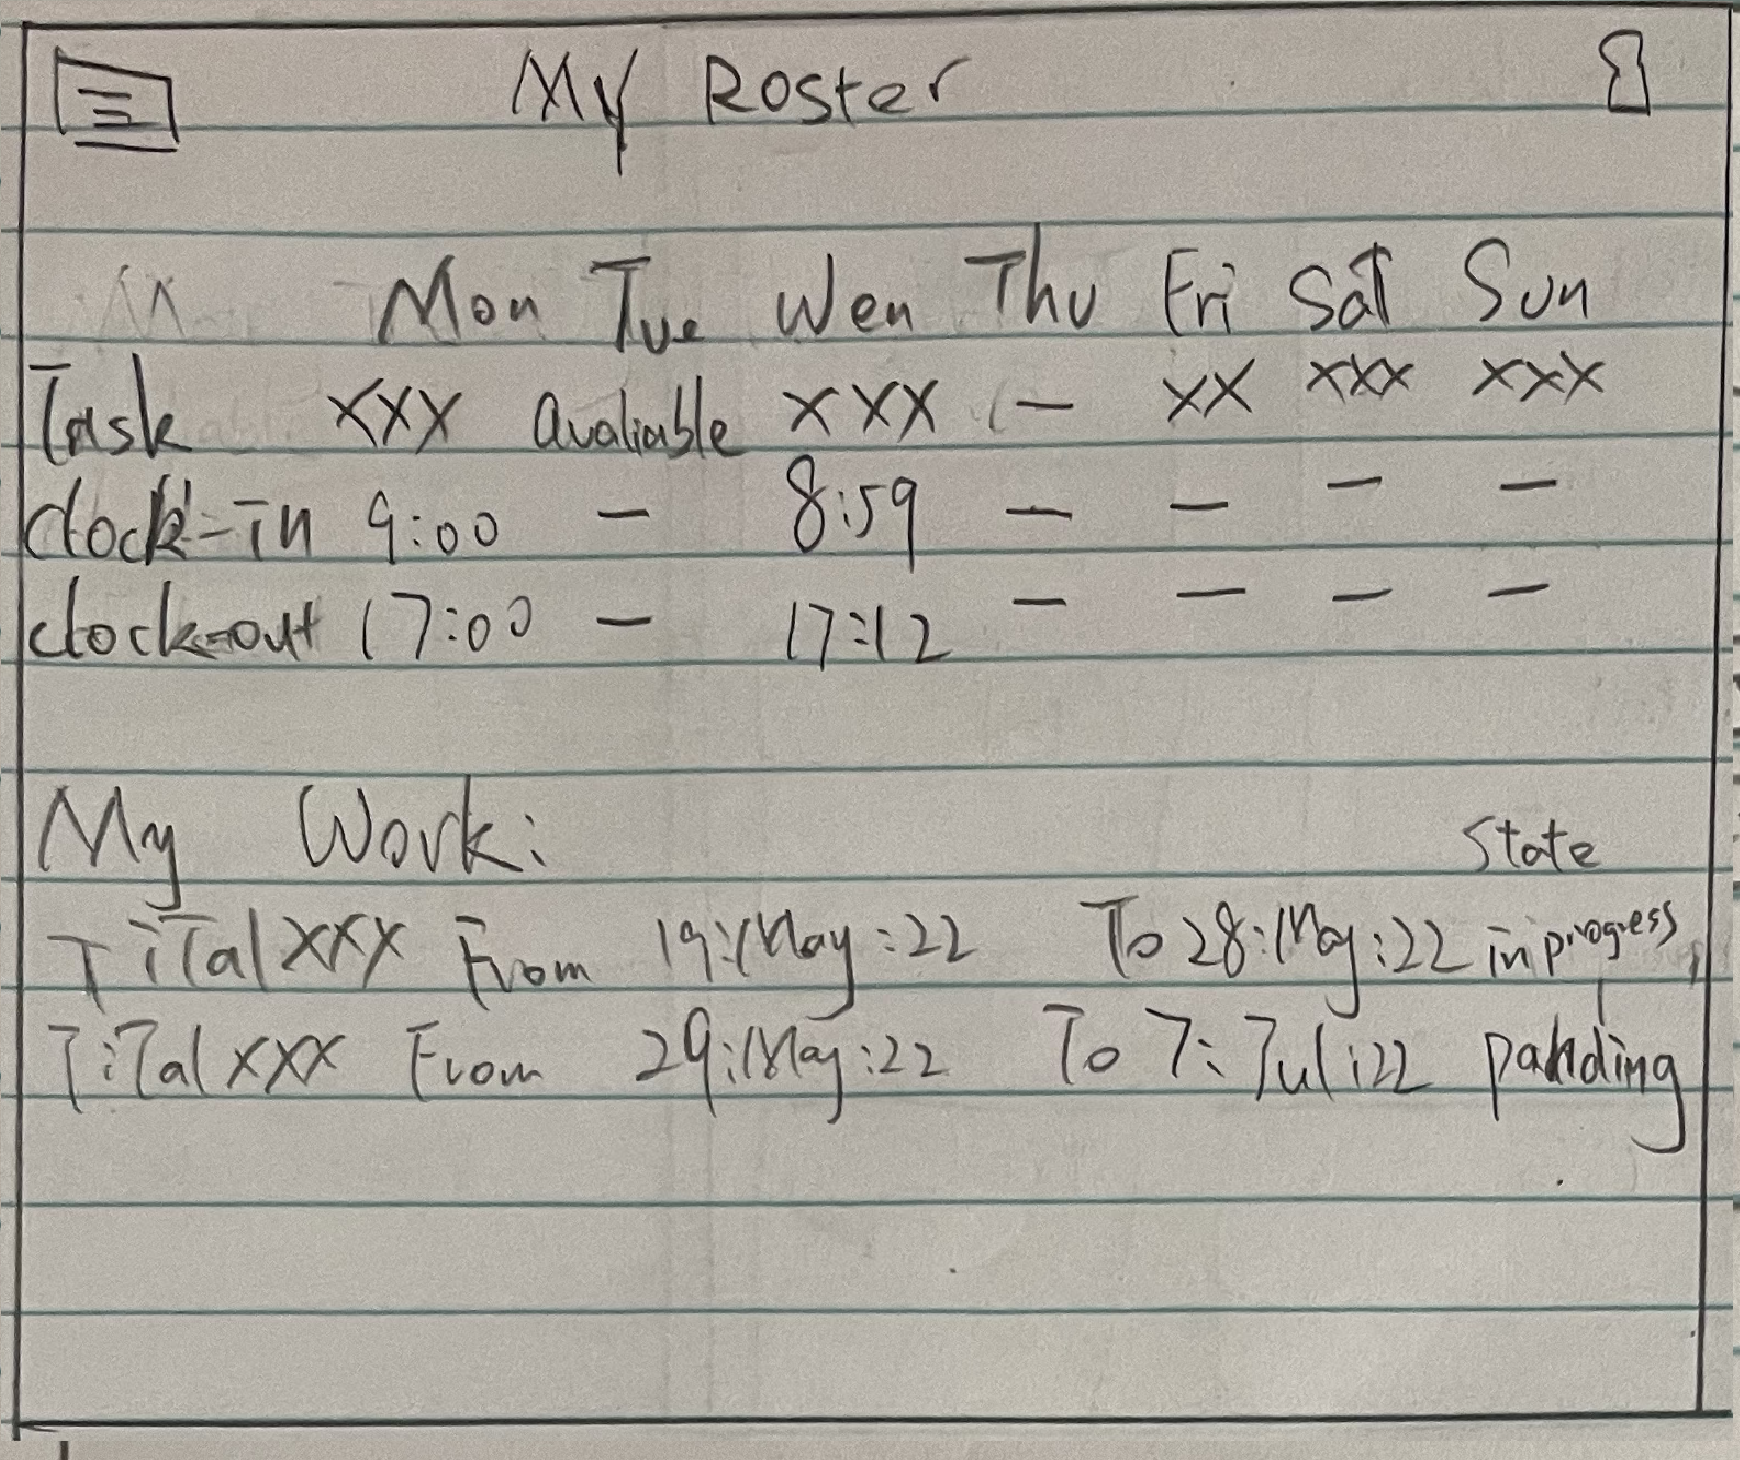 My Roster
Mon Tue Wen Thu Fri Sat Sun
Task XXX avaliable XXX - XX XXX XXX
clock-in 9:00 - 8:59 - - - -
clock-out 17:00 - 17:12 - - - -
My Work: state
TiTal XXX From 19:May:22 To 28:May:22 in progress
TiTal XXX From 29:May:22 To 7:Jul:22 panding